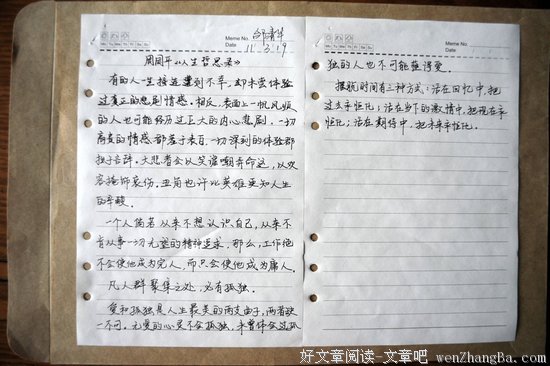 Memo No.
Mo Tu We Th Fr Sa Su
Date
11.3.19
周国平《人生哲思录》
有的人一生接连遭到不幸,却未尝体验
过真正的悲剧情感。相反,表面上一帆风顺
的人也可能经历过巨大的内心悲剧,一切
高贵的情感都羞于表白,一切深刻的体验都
拙于言辞。大悲者会以笑谑嘲弄命运,以欢
容掩饰哀伤。丑角也许比英雄更知人生
的辛酸。
一个人倘若从来不想认识自己,从来不
肯从事一切无望的精神追求,那么,工作绝
不会使他成为完人,而只会使他成为庸人。
凡人群聚集之处,必有孤独。
爱和孤独是人生最美的两支曲子,两者缺
一不可。无爱的心灵不会孤独,未曾体会过孤
Memo No.
Mo Tu We Th Fr Sa Su
Date
独的人也不可能懂得爱。
摆脱时间有三种方式:活在回忆中,把
过去永恒化;活在当下的激情中,把现在永
恒化;活在期待中,把未来永恒化。
好文章阅读-文章吧 wenZhangBa.com